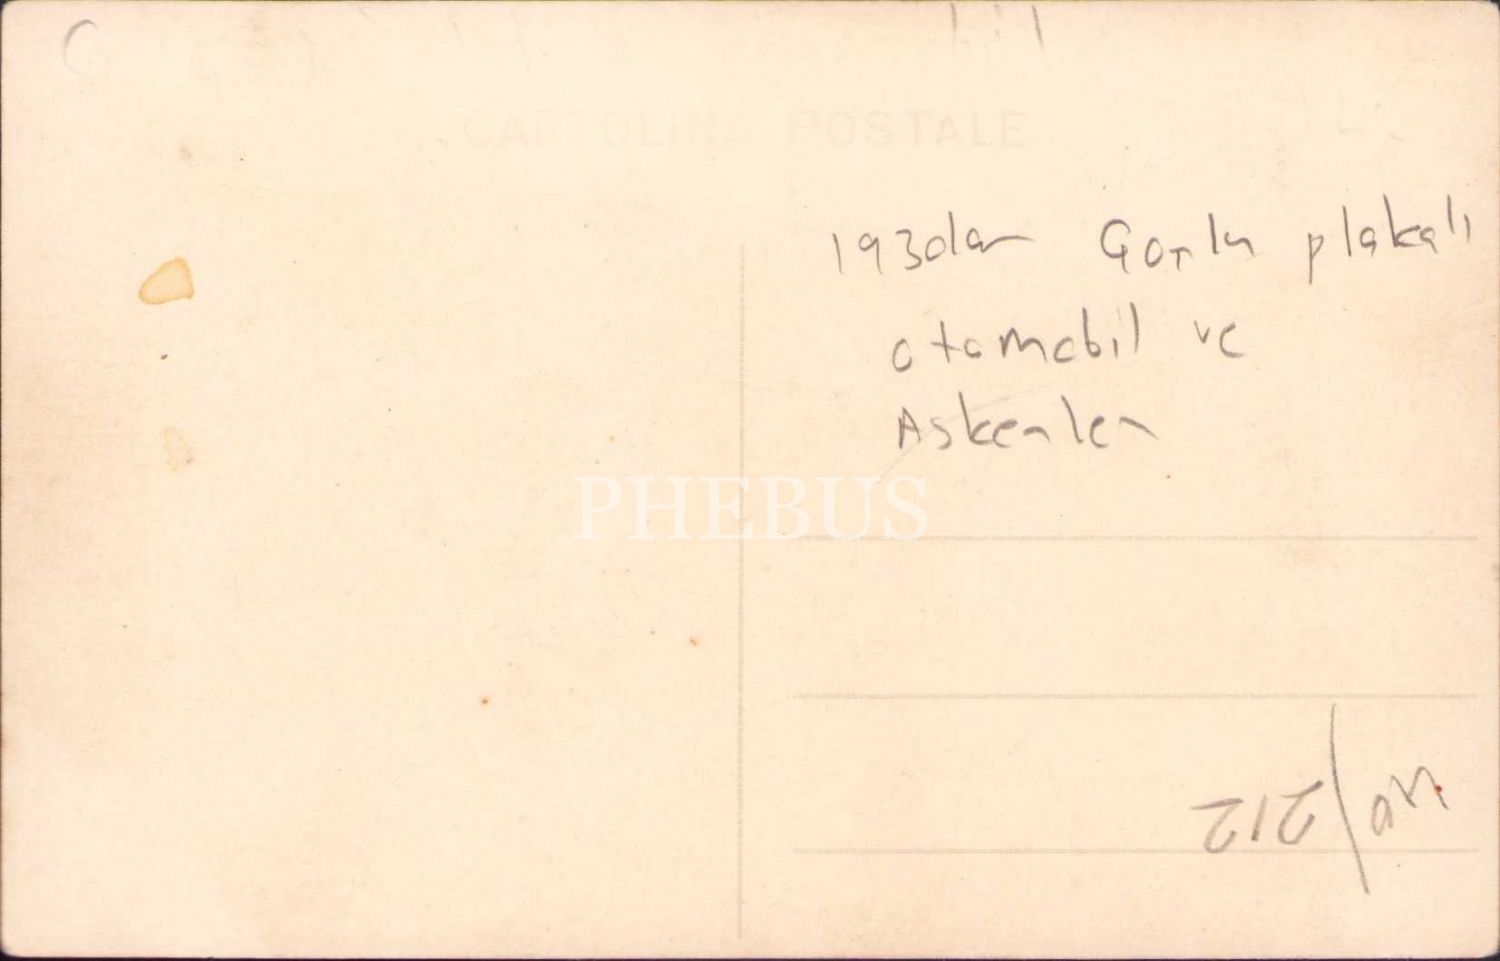 CARTOLINA POSTALE
1930lar Çorlu plakalı
otomobil ve
Askerler
PHEBUS
212